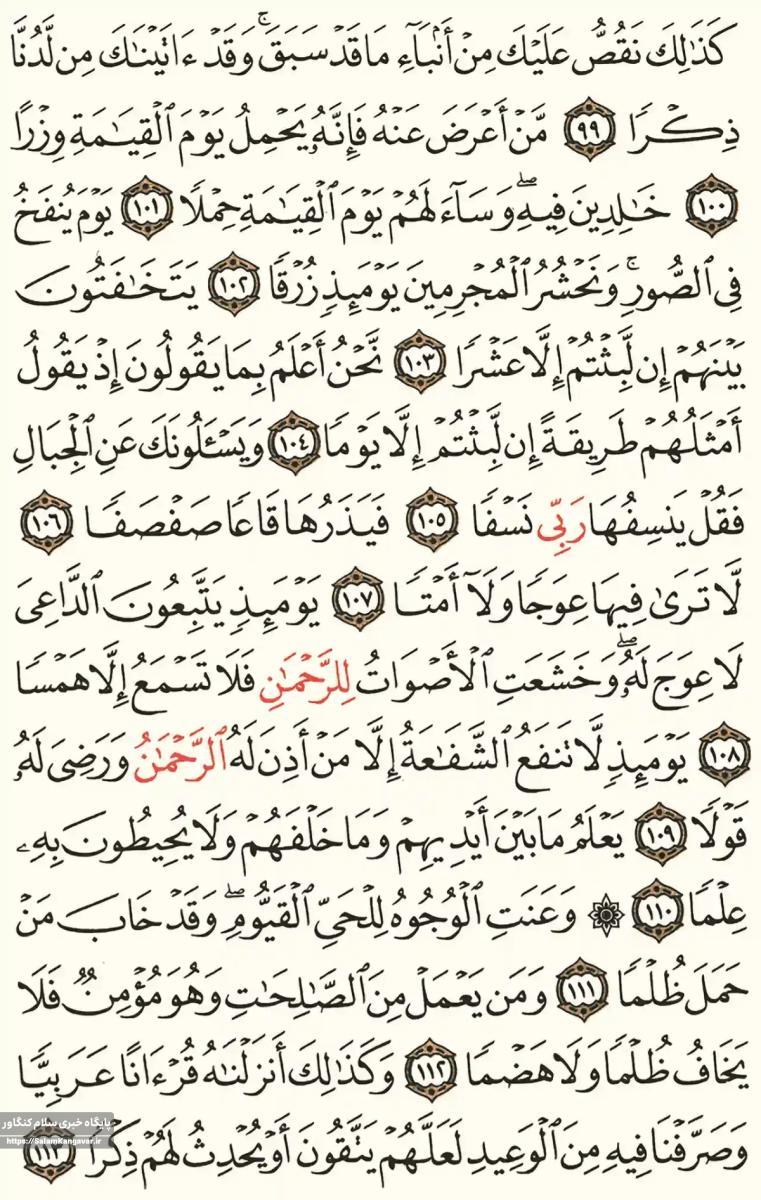 كَذَٰلِكَ نَقُصُّ عَلَيْكَ مِنْ أَنۢبَآءِ مَا قَدْ سَبَقَ ۚ وَقَدْ ءَاتَيْنَٰكَ مِن لَّدُنَّا
ذِكْرًا ﴿٩٩﴾ مَّنْ أَعْرَضَ عَنْهُ فَإِنَّهُۥ يَحْمِلُ يَوْمَ ٱلْقِيَٰمَةِ وِزْرًا
﴿١٠٠﴾ خَٰلِدِينَ فِيهِ ۖ وَسَآءَ لَهُمْ يَوْمَ ٱلْقِيَٰمَةِ حِمْلًا ﴿١٠١﴾ يَوْمَ يُنفَخُ
فِى ٱلصُّورِ ۚ وَنَحْشُرُ ٱلْمُجْرِمِينَ يَوْمَئِذٍ زُرْقًا ﴿١٠٢﴾ يَتَخَٰفَتُونَ
بَيْنَهُمْ إِن لَّبِثْتُمْ إِلَّا عَشْرًا ﴿١٠٣﴾ نَّحْنُ أَعْلَمُ بِمَا يَقُولُونَ إِذْ يَقُولُ
أَمْثَلُهُمْ طَرِيقَةً إِن لَّبِثْتُمْ إِلَّا يَوْمًا ﴿١٠٤﴾ وَيَسْـَٔلُونَكَ عَنِ ٱلْجِبَالِ
فَقُلْ يَنسِفُهَا رَبِّى نَسْفًا ﴿١٠٥﴾ فَيَذَرُهَا قَاعًا صَفْصَفًا ﴿١٠٦﴾
لَّا تَرَىٰ فِيهَا عِوَجًا وَلَآ أَمْتًا ﴿١٠٧﴾ يَوْمَئِذٍ يَتَّبِعُونَ ٱلدَّاعِىَ
لَا عِوَجَ لَهُۥ ۖ وَخَشَعَتِ ٱلْأَصْوَاتُ لِلرَّحْمَٰنِ فَلَا تَسْمَعُ إِلَّا هَمْسًا
﴿١٠٨﴾ يَوْمَئِذٍ لَّا تَنفَعُ ٱلشَّفَٰعَةُ إِلَّا مَنْ أَذِنَ لَهُ ٱلرَّحْمَٰنُ وَرَضِىَ لَهُۥ
قَوْلًا ﴿١٠٩﴾ يَعْلَمُ مَا بَيْنَ أَيْدِيهِمْ وَمَا خَلْفَهُمْ وَلَا يُحِيطُونَ بِهِۦ
عِلْمًا ﴿١١٠﴾ ۞ وَعَنَتِ ٱلْوُجُوهُ لِلْحَىِّ ٱلْقَيُّومِ ۖ وَقَدْ خَابَ مَنْ
حَمَلَ ظُلْمًا ﴿١١١﴾ وَمَن يَعْمَلْ مِنَ ٱلصَّٰلِحَٰتِ وَهُوَ مُؤْمِنٌ فَلَا
يَخَافُ ظُلْمًا وَلَا هَضْمًا ﴿١١٢﴾ وَكَذَٰلِكَ أَنزَلْنَٰهُ قُرْءَانًا عَرَبِيًّا
وَصَرَّفْنَا فِيهِ مِنَ ٱلْوَعِيدِ لَعَلَّهُمْ يَتَّقُونَ أَوْ يُحْدِثُ لَهُمْ ذِكْرًا ﴿١١٣﴾
پایگاه خبری سلام کنگاور
https://SalamKangavar.ir